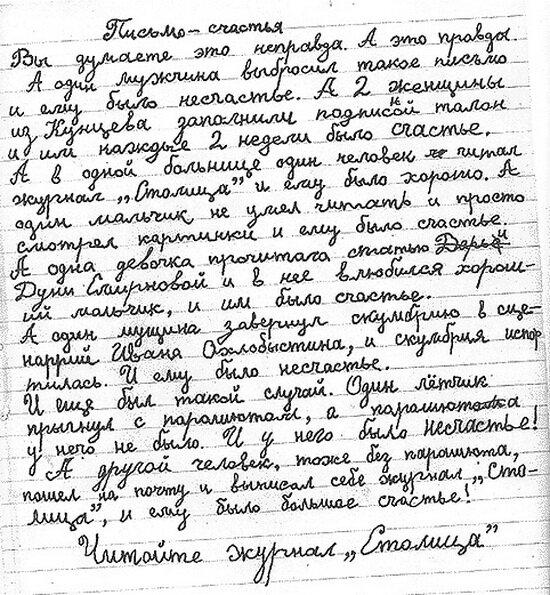 Письмо-счастья
Вы думаете это неправда. А это правда.
А один мужчина выбросил такое письмо
и ему было несчастье. А 2 женщины
из Кунцева заполнили подписной талон
и им каждые 2 недели было счастье.
А в одной больнице один человек читал
журнал „Столица” и ему было хорошо. А
один мальчик не умел читать и просто
смотрел картинки и ему было счастье.
А одна девочка прочитала статью
Дуни Смирновой и в нее влюбился хорош-
ий мальчик, и им было счастье.
А один мущина завернул скумбрию в сце-
наррий Ивана Охлобыстина, и скумбрия испор
тилась. И ему было несчастье.
И еще был такой случай. Один лётчик
прыгнул с парашютом, а парашюта
у него не было. И у него было несчастье!
А другой человек, тоже без парашюта,
пошел на почту и выписал себе журнал „Сто-
лица”, и ему было большое счастье!
Читайте журнал „Столица”